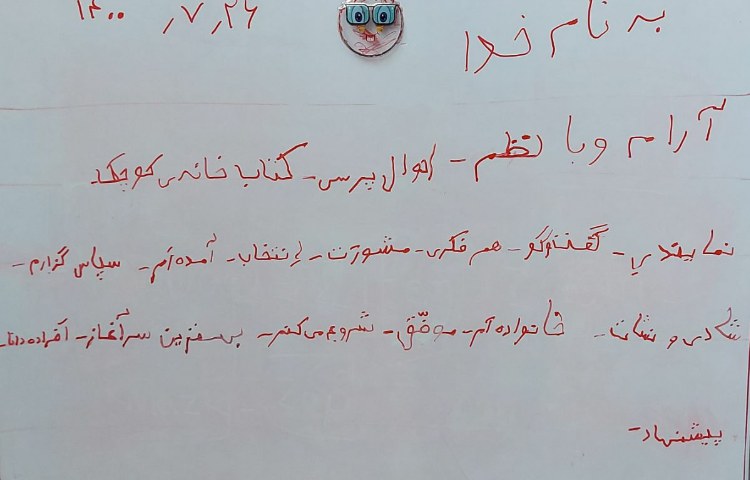 به نام خدا ۱۴۰۰٫۷٫۲۶
آرام و با نظم - احوال پرسی - کتاب خانه‌ی کوچک
نمایندگی - گفت‌وگو - هم فکری - مشورت - انتخاب - آمده‌ام - سپاس گزارم -
شادی و نشاط - خانواده‌ام - موفّق - شروع می‌کنم - بهترین سرآغاز - افراد دانا -
پیشنهاد -